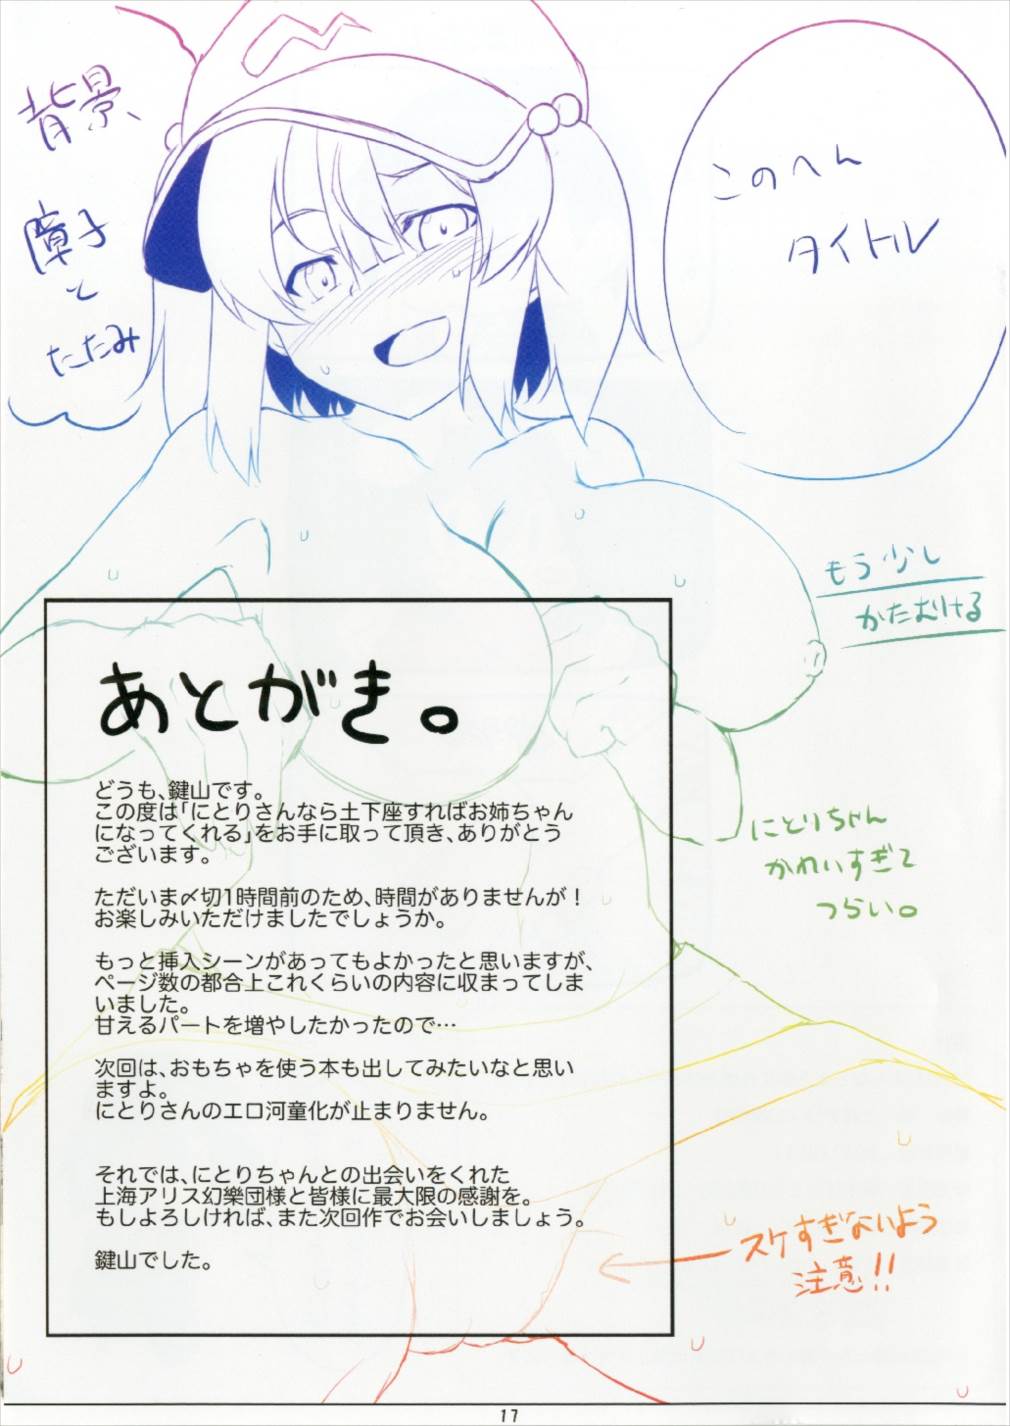 背景、
障子
と
たたみ
このへん
タイトル
もう少し
かたむける
あとがき。
どうも、鍵山です。
この度は「にとりさんなら土下座すればお姉ちゃん
になってくれる」をお手に取って頂き、ありがとう
ございます。
ただいま〆切1時間前のため、時間がありませんが！
お楽しみいただけましたでしょうか。
もっと挿入シーンがあってもよかったと思いますが、
ページ数の都合上これくらいの内容に収まってしま
いました。
甘えるパートを増やしたかったので…
次回は、おもちゃを使う本も出してみたいなと思い
ますよ。
にとりさんのエロ河童化が止まりません。
それでは、にとりちゃんとの出会いをくれた
上海アリス幻樂団様と皆様に最大限の感謝を。
もしよろしければ、また次回作でお会いしましょう。
鍵山でした。
にとりちゃん
かわいすぎて
つらい。
スケすぎないよう
注意!!
17